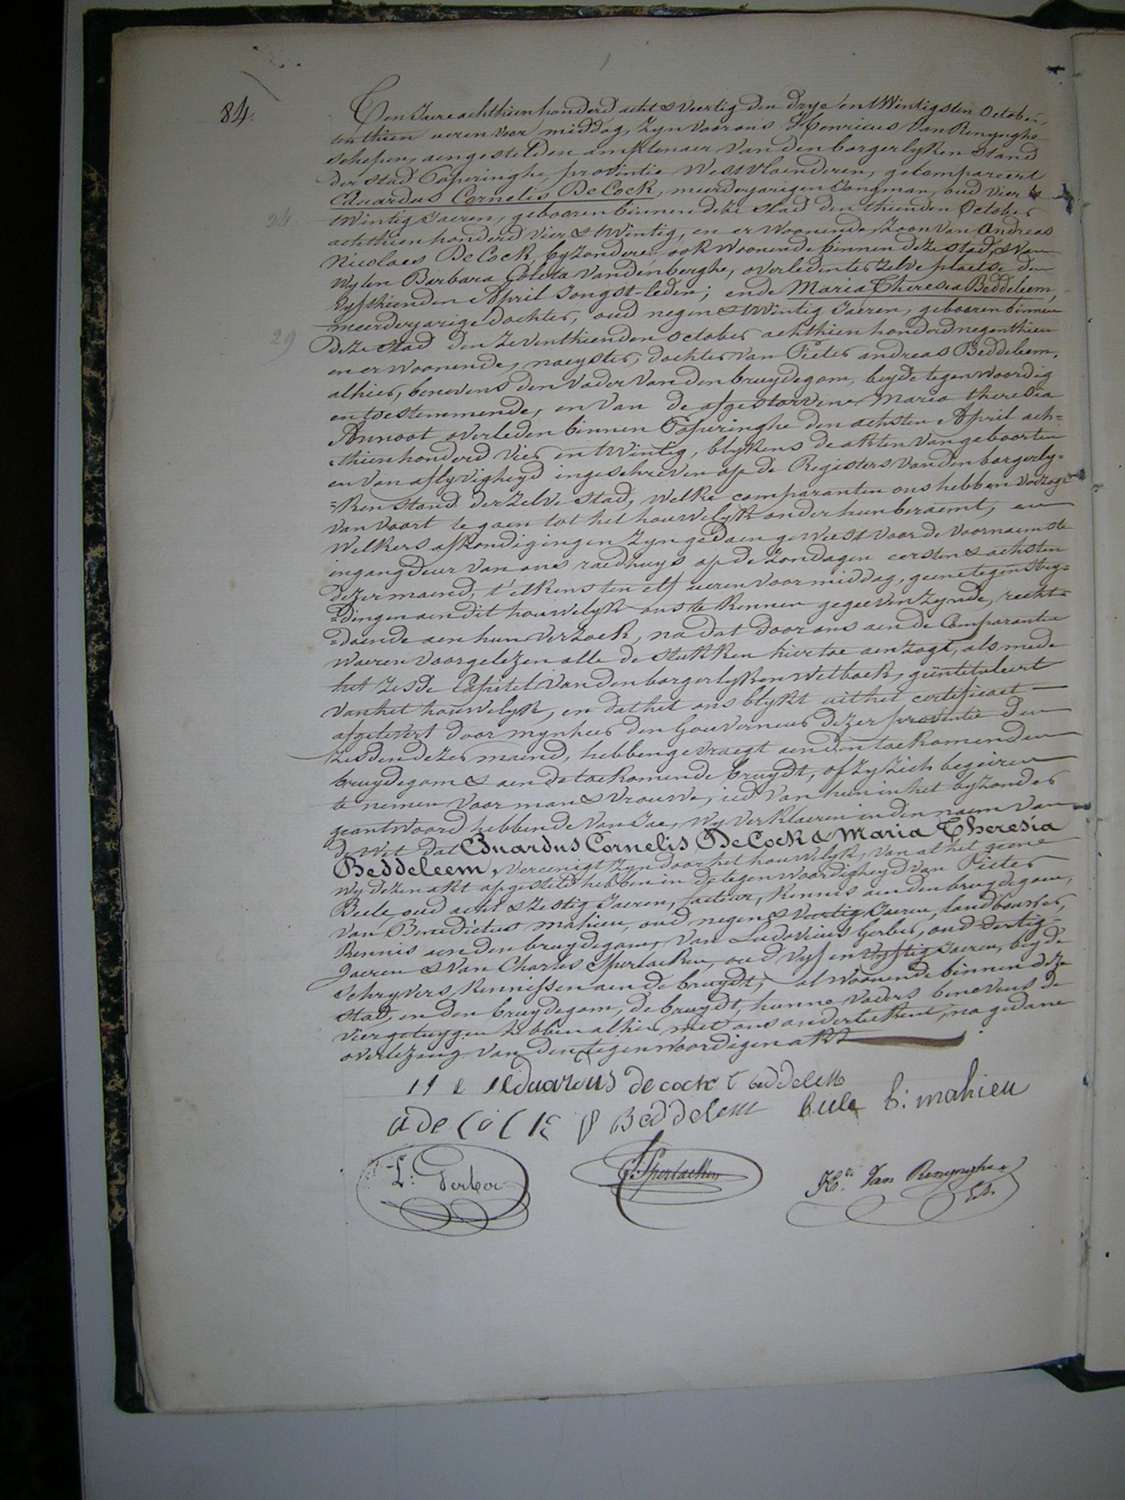 84.
Ten Jaere achthien honderd acht & veertig den drye en twintigsten October,
ten thien ueren voor middag, zyn voor ons Henricus Van Renynghe
schepen, aengestelden amptenaer van den borgerlyken stand
der stad Poperinghe, provintie Westvlaenderen, gekompareert
Eduardus Cornelis De Cock, meerderjarigen Jongman, oud vier &
24 twintig Jaeren, gebooren binnen deze stad den thienden October
achthien honderd vier & twintig, en er woonende, Zoon van Andreas
Nicolaes De Cock, byzondere, ook woonende binnen deze stad, & van
wylen Barbara Coleta Vandenberghe, overleden ter zelve plaetse den
vyfthienden April Jongst-leden; ende Maria Theresia Beddeleem,
meerderjarige dochter, oud negen & twintig Jaeren, gebooren binnen
29 deze stad den zeventhienden October achthien honderd negenthien
en er woonende, naeyster, dochter van Pieter andreas Beddeleem,
alhier, benevens den vader van den bruydegom, beyde tegenwoordig
en toestemmende, en van de afgestorvene Maria theresia
Annoot overleden binnen Poperinghe den achsten April ach=
=thien honderd vier en twintig, blykens de akten van geboorten
en van aflyvigheyd ingeschreven op de Registers van den borgerly=
=ken stand der zelve stad, welke comparanten ons hebben verzogt
van voort te gaen tot het houwelyk onder hun beraemt, en
welkers afkondigingen zyn gedaen geweest voor de voornaemste
ingangdeur van ons raedhuys op de zondagen eersten & achsten
dezer maend, t'elkens ten elf ueren voormiddag, geene tegenstry=
=dingen aen dit houwelyk ons te kennen gegeeven zynde, recht=
=doende aen hun verzoek, na dat door ons aen de Comparante
waeren voorgelezen alle de stukken hier toe aenzogt, als mede
het zesde Capitel van den borgerlyken Wetboek, geintituleert
van het houwelyk, en dat het ons blykt uit het certificaet
afgelevert door mynheer den Gouverneur dezer provintie den
zesden dezer maend, hebben gevraegt aen den toekomenden
bruydegom & aen de toekomende bruydt, of zy zich begeiren
te nemen voor man & vrouwe; ied van hun in het byzonder
geantwoord hebbende Van Jae, wy verklaeren in den naem van
de Wet dat Eduardus Cornelis De Cock & Maria Theresia
Beddeleem, vereenigt zyn door het houwelyk, van al het geene
wy dezen akt opgestelt hebben in de tegenwoordigheyd van Pieter
Beele, oud acht & zestig Jaeren, facteur, kennis aen den bruydegom,
van Benedictus mahieu, oud negen & veertig Jaeren, landbouwer,
kennis aen den bruydegom, van Ludovicus Gerber, oud dertig
Jaeren & van Charles Sperlaeken, oud vyf en vyftig Jaeren, beyde
schryvers, kennissen aen de bruydt; al woonende binnen deze
stad, en den bruydegom, de bruydt, hunne vaders benevens de
vier getuygen hebben alhier met ons onderteekent, na gedane
overlezing van den tegenwoordigen akt
Eduardus de cock t beddelem
a de Cock p Beddelem beele b: mahieu
L: Gerber C. Sperlaeken H: Van Renynghe